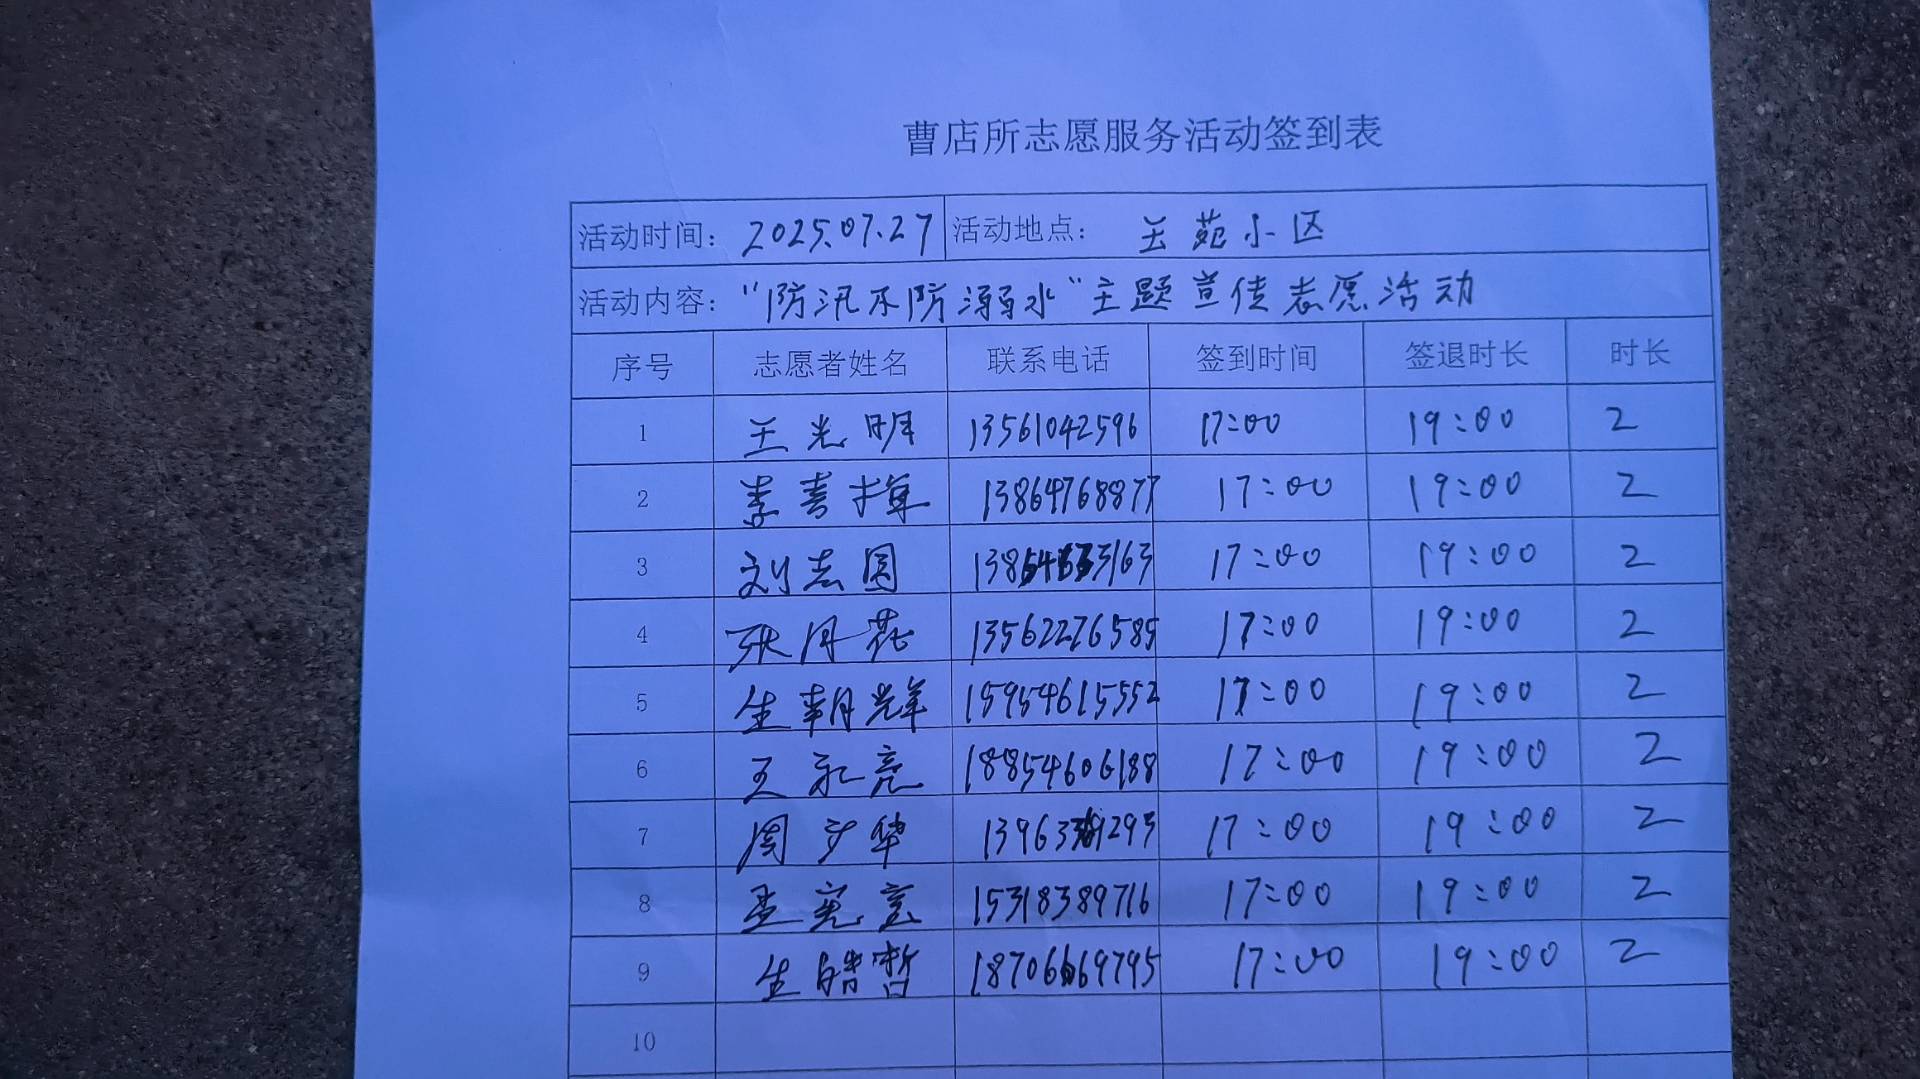 曹店所志愿服务活动签到表
活动时间: 2025.07.27 活动地点: 王苑小区
活动内容: “防汛不防溺水”主题宣传志愿活动
序号 志愿者姓名 联系电话 签到时间 签退时长 时长
1 王光明 13561042596 17:00 19:00 2
2 13864768877 17:00 19:00 2
3 刘志圆 17:00 19:00 2
4 张月花 13562276585 17:00 19:00 2
5 生朝辉 15954615552 17:00 19:00 2
6 王永亮 18854606188 17:00 19:00 2
7 周少华 17:00 19:00 2
8 15318389716 17:00 19:00 2
9 生皓哲 18706669795 17:00 19:00 2
10